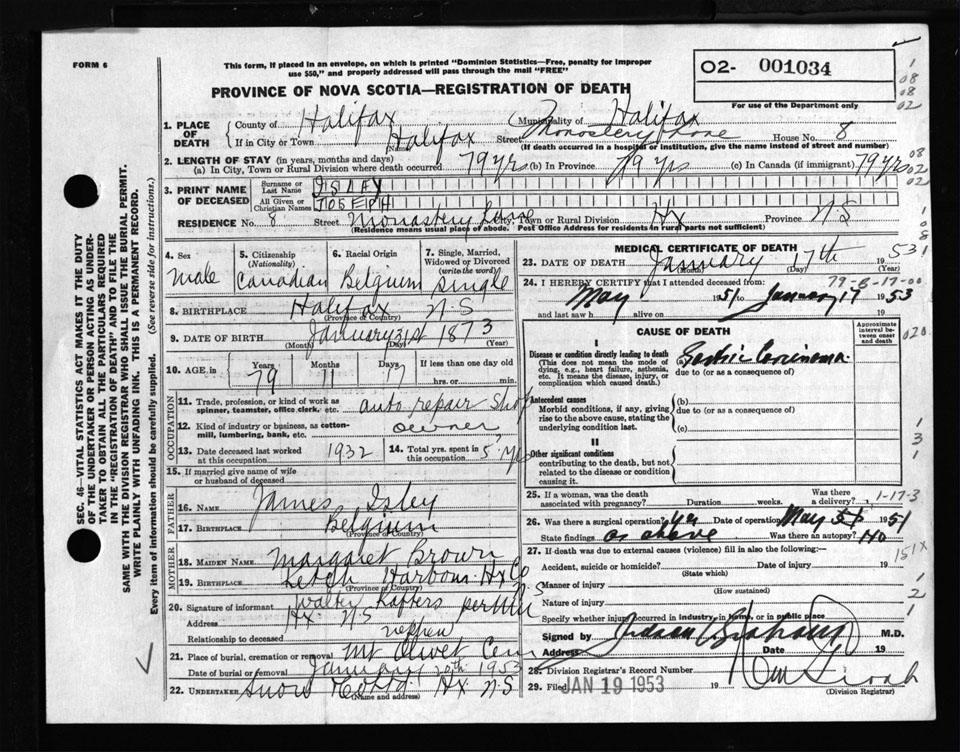 FORM 6
This form, if placed in an envelope, on which is printed "Dominion Statistics—Free, penalty for improper
use $50," and properly addressed will pass through the mail "FREE"
PROVINCE OF NOVA SCOTIA—REGISTRATION OF DEATH
O2- 001034
For use of the Department only
1. PLACE OF DEATH
County of Halifax Municipality of Halifax
If in City or Town Halifax Street Monastery Lane House No. 8
Name (If death occurred in a hospital or institution, give the name instead of street and number)
2. LENGTH OF STAY (in years, months and days)
(a) In City, Town or Rural Division where death occurred 79 yrs (b) In Province 79 yrs (c) In Canada (if immigrant) 79 yrs
3. PRINT NAME OF DECEASED
Surname or Last Name ISLAY
All Given or Christian Names JOSEPH
RESIDENCE No. 8 Street Monastery Lane City, Town or Rural Division Hx Province N.S
(Residence means usual place of abode. Post Office Address for residents in rural parts not sufficient)
4. Sex Male
5. Citizenship (Nationality) Canadian
6. Racial Origin Belgium
7. Single, Married, Widowed or Divorced (write the word) Single
8. BIRTHPLACE Halifax N S
(Province or Country)
9. DATE OF BIRTH January 31st 1873
(Month) (Day) (Year)
10. AGE in 79 Years 11 Months 17 Days If less than one day old
hrs. or min.
OCCUPATION
11. Trade, profession, or kind of work as
spinner, teamster, office clerk, etc. auto repair shop
12. Kind of industry or business, as cotton-
mill, lumbering, bank, etc. owner
13. Date deceased last worked
at this occupation 1932
14. Total yrs. spent in
this occupation 5 yrs
15. If married give name of wife
or husband of deceased
FATHER
16. NAME James Isley
17. BIRTHPLACE Belgium
(Province or Country)
MOTHER
18. MAIDEN NAME Margaret Brown
19. BIRTHPLACE Ketch Harbour Hx Co N.S
(Province or Country)
20. Signature of informant Walter Rafters per
Address Hx N S
Relationship to deceased nephew
21. Place of burial, cremation or removal Mt Olivet Cem
Date of burial or removal January 20th 1953
22. UNDERTAKER Snow & Co Ltd Hx N.S
(Name and address)
MEDICAL CERTIFICATE OF DEATH
23. DATE OF DEATH January 17th 53
(Month) (Day) (Year)
24. I HEREBY CERTIFY that I attended deceased from:
May 1951 to January 17 1953
and last saw h alive on 19
CAUSE OF DEATH
Approximate interval between onset and death
I
Disease or condition directly leading to death
(This does not mean the mode of
dying, e.g., heart failure, asthenia,
etc. It means the disease, injury, or
complication which caused death.
(a) Gastric Carcinoma
due to (or as a consequence of)
Antecedent causes
Morbid conditions, if any, giving
rise to the above cause, stating the
underlying condition last.
(b)
due to (or as a consequence of)
(c)
II
Other significant conditions
contributing to the death, but not
related to the disease or condition
causing it.
25. If a woman, was the death
associated with pregnancy? Duration weeks. Was there
a delivery?
1-17-3
26. Was there a surgical operation? Yes Date of operation May 1951
State findings as above Was there an autopsy? No
27. If death was due to external causes (violence) fill in also the following:—
Accident, suicide or homicide? Date of injury 19
(State which)
Manner of injury
(How sustained)
Nature of injury
Specify whether injury occurred in industry, in home, or in public place
Signed by M.D.
Address Date 19
28. Division Registrar's Record Number
29. Filed JAN 19 1953 19
(Division Registrar)
SEC. 46—VITAL STATISTICS ACT MAKES IT THE DUTY
OF THE UNDERTAKER OR PERSON ACTING AS UNDER-
TAKER TO OBTAIN ALL THE PARTICULARS REQUIRED
IN THE "REGISTRATION OF DEATH" AND TO FILE THE
SAME WITH THE DIVISION REGISTRAR WHO SHALL ISSUE THE BURIAL PERMIT.
WRITE PLAINLY WITH UNFADING INK. THIS IS A PERMANENT RECORD.
Every item of information should be carefully supplied. (See reverse side for instructions.)